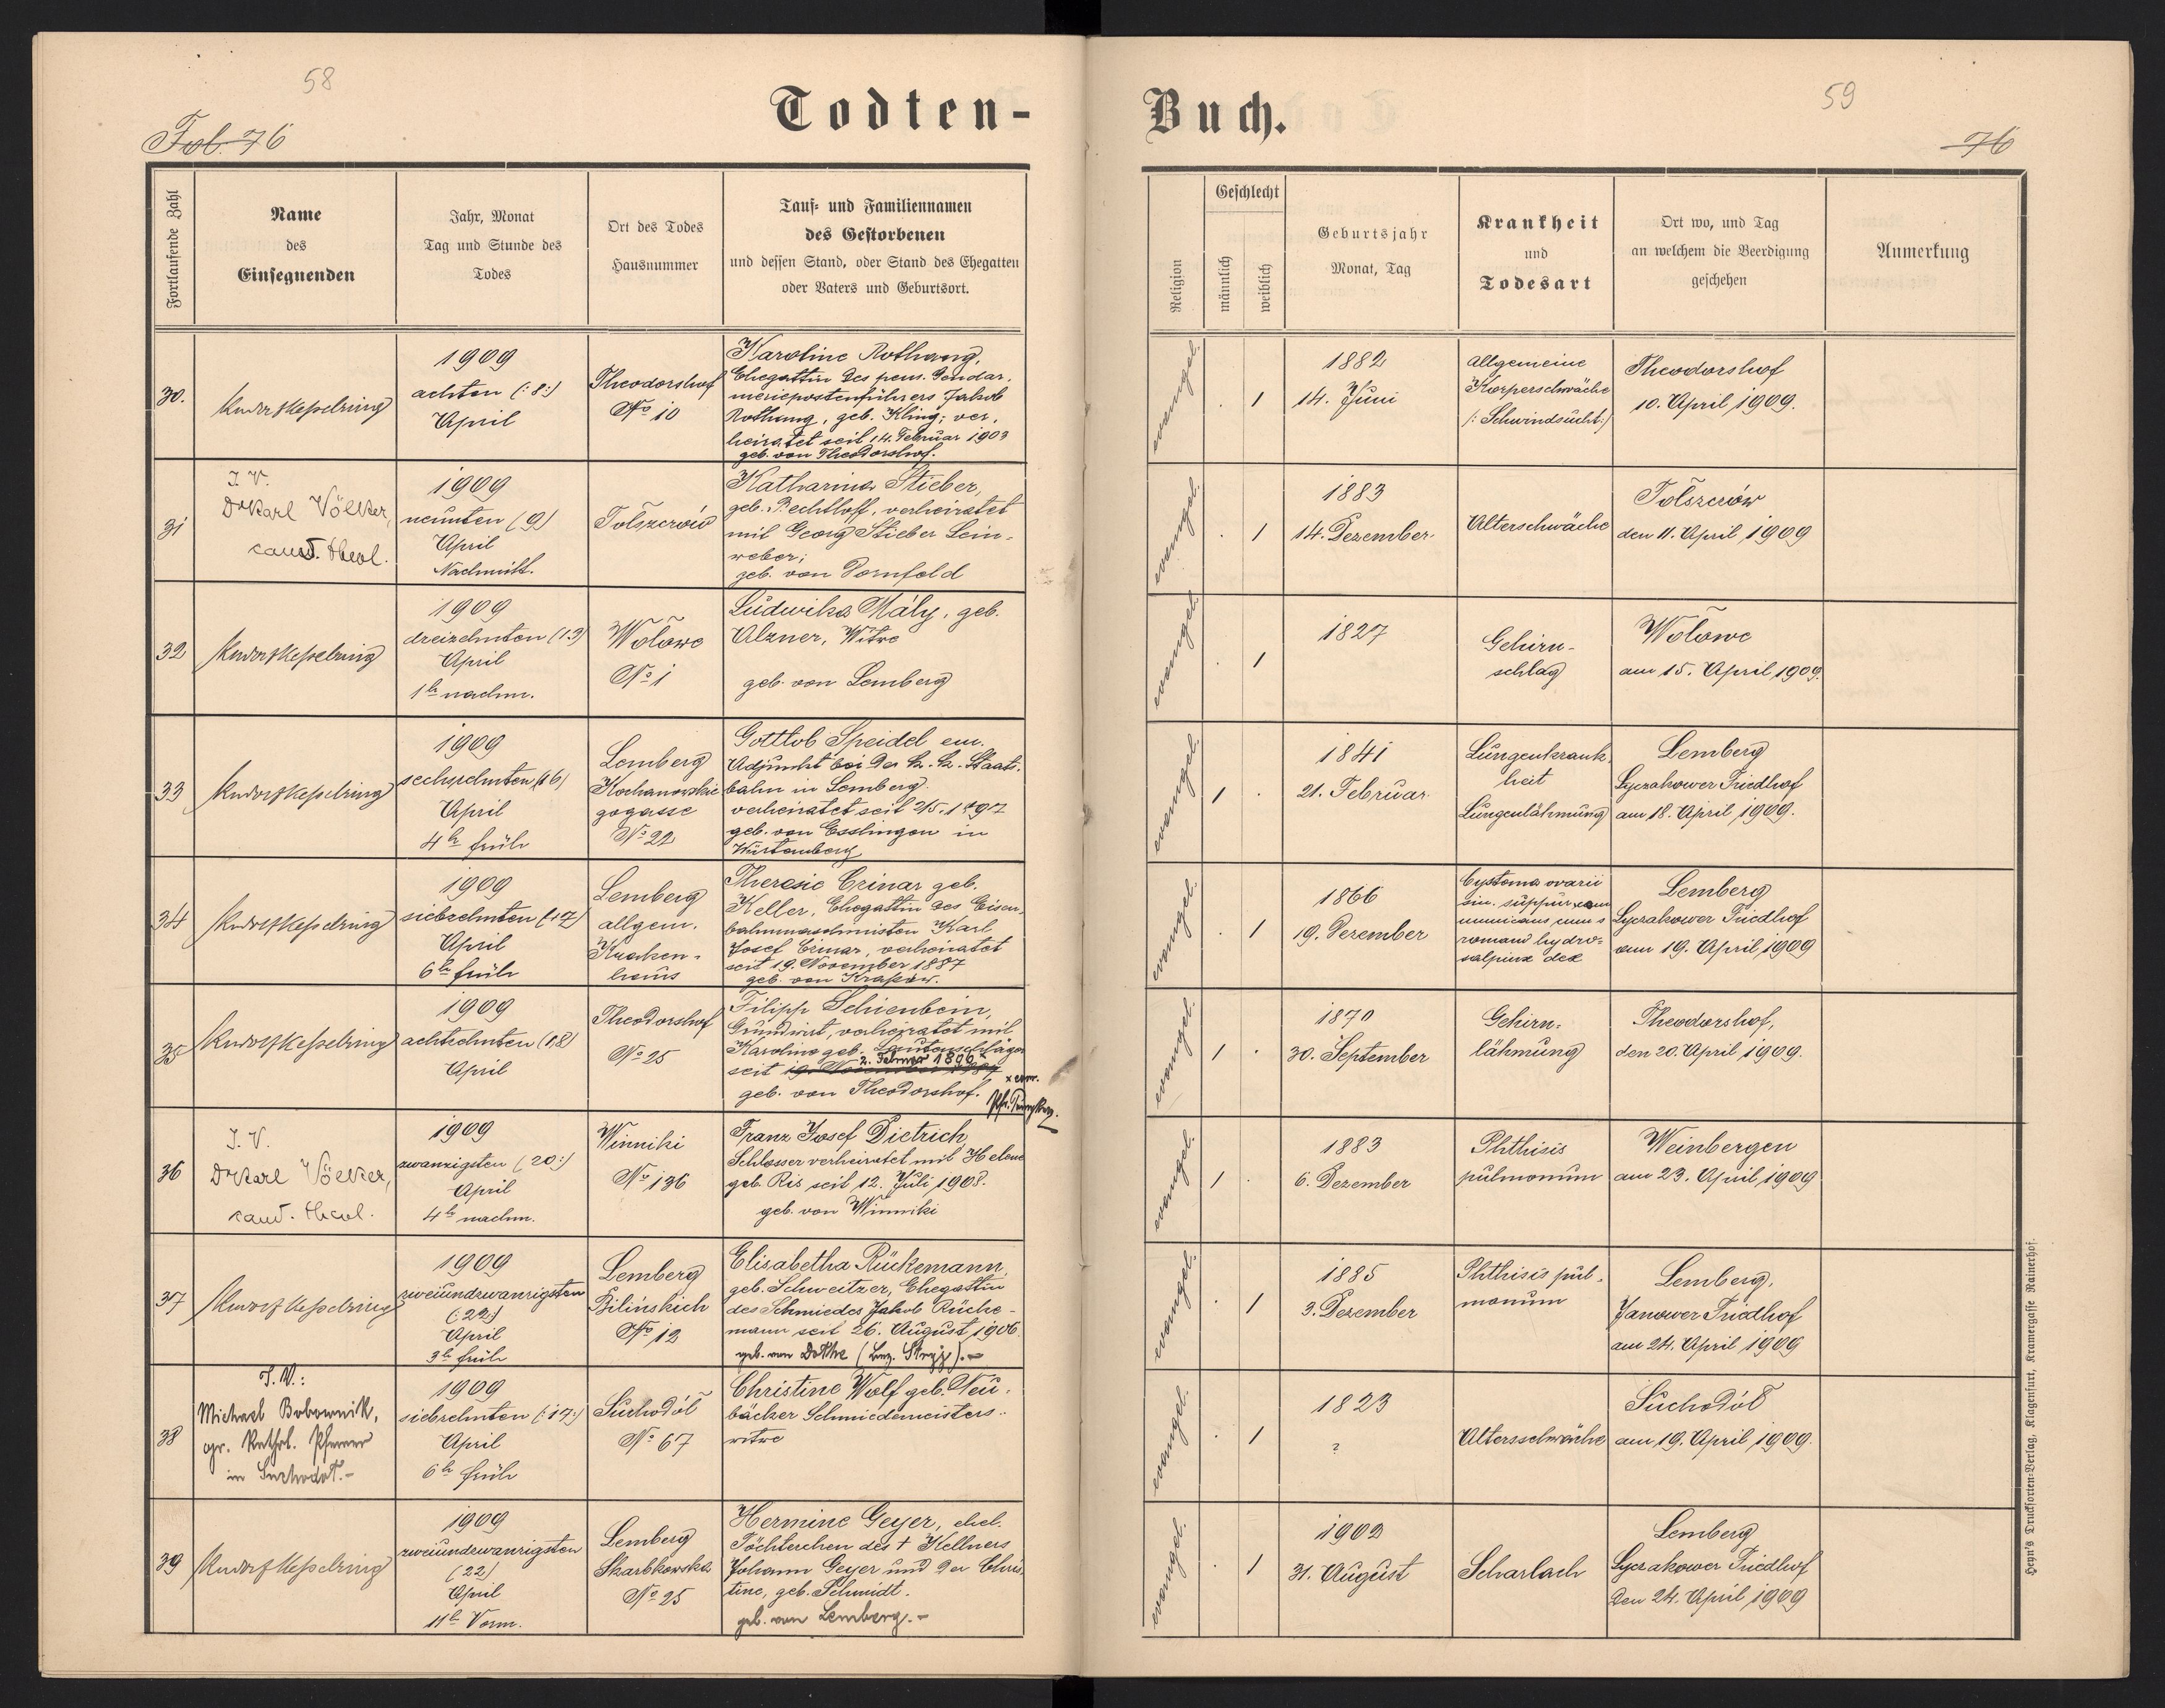 58
Fol. 76
Todten-
Fortlaufende Zahl
Name
des
Einsegnenden
Jahr, Monat
Tag und Stunde des
Todes
Ort des Todes
Hausnummer
Tauf- und Familiennamen
des Gestorbenen
und dessen Stand, oder Stand des Ehegatten
oder Vaters und Geburtsort.
30.
Kesselring
1909
achten (:8:)
April
Theodorshof
No 10
Karoline Rothang,
Ehegattin des pens. Gendar-
meriepostenführers Jakob
Rothung, geb. Kling; ver-
heiratet seit 14. Februar 1903
geb. von Theodorshof.
31
I. V.
Dr Karl Völker,
cand. theol.
1909
neunten (9)
April
Nachmitt.
Tołszczów
Katharina Stieber,
geb. Bechtloff, verheiratet
mit Georg Stieber Lein-
weber;
geb. von Dornfeld
32
Kesselring
1909
dreizehnten (13)
April
1h nachm.
Wołowe
No 1
Ludwika Mály, geb.
Alzner, Witwe
geb. von Lemberg
33
Kesselring
1909
sechszehnten (16)
April
4h früh
Lemberg
Kochanowskie
gogasse
No 22
Gottlob Speidel em.
Adjunkt bei der k. k. Staats-
bahn in Lemberg.
verheiratet seit 2/5. 1897
geb. von Esslingen in
Würtemberg
34
Kesselring
1909
siebzehnten (17)
April
6h früh
Lemberg
allgem.
Kranken-
haus
Theresie Crinar geb.
Keller, Ehegattin des Eisen-
bahnmaschinisten Karl
Josef Crinar, verheiratet
seit 19. November 1887
geb. von Krakau.
35
Kesselring
1909
achtzehnten (18)
April
Theodorshof
No 25
Filipp Schienbein,
Grundwirt, verheiratet mit
Karoline geb. Lautenschläger
2. Februar 1896 x
seit
geb. von Theodorshof.
x
36
I. V.
Dr Karl Völker,
cand. theol.
1909
zwanzigsten (20:)
April
4h nachm.
Winniki
No 136
Franz Josef Dietrich
Schlosser verheiratet mit Helene
geb. Ris seit 12. Juli 1908.
geb. von Winniki
37
Kesselring
1909
zweiundzwanzigsten
(:22:)
April
3h früh
Lemberg
Bilińskich
No 12
Elisabetha Rückemann,
geb. Schweitzer, Ehegattin
des Schmiedes Jakob Rücke-
mann seit 26. August 1906
geb. von (Bez. Stryj).-
38
I. V.:
Michael Bobownik,
gr. kathol. Pfarrer
in Suchodoł.-
1909
siebzehnten (:17:)
April
6h früh
Suchodół
No 67
Christine Wolf geb. Neu-
bäcker Schmiedemeisters-
witwe
39
Kesselring
1909
zweiundzwanzigsten
(22)
April
11h Vorm.
Lemberg
Skarbkowska
No 25
Hermine Geyer, ehel.
Töchterchen des + Kellners
Johann Geyer und der Chris-
tine, geb. Schmidt.
geb. von Lemberg.-
59
76
Buch.
Religion
Geschlecht
männlich
weiblich
Geburtsjahr
Monat, Tag
Krankheit
und
Todesart
Ort wo, und Tag
an welchem die Beerdigung
geschehen
Anmerkung
evangel.
. 1
1882
14. Juni
allgemeine
Körperschwäche
/: Schwindsucht :/
Theodorshof
10. April 1909.
evangel.
. 1
1883
14. Dezember
Alterschwäche
Tołszczów
den 11. April 1909
evangel.
. 1
1827
Gehirn-
schlag
Wołowe
am 15. April 1909.
evangel.
1 .
1841
21. Februar
Lungenkrank-
heit
Lungenlähmung
Lemberg
Lyczakower Friedhof
am 18. April 1909.
evangel.
. 1
1866
19. Dezember
Cystoma ovarii
sin. suppur. com
municans cum s
romano hydro-
salpinx dex
Lemberg
Lyczakower Friedhof
am 19. April 1909
evangel.
1 .
1870
30. September
Gehirn-
lähmung
Theodorshof,
den 20. April 1909.
evangel.
1 .
1883
6. Dezember
Phthisis
pulmonum
Weinbergen
am 23. April 1909
evangel.
. 1
1885
3. Dezember
Phthisis pul-
monum
Lemberg,
Janower Friedhof
am 24. April 1909
evangel.
. 1
1823
?
Altersschwäche
Suchodół
am 19. April 1909.
evangel.
. 1
1902
31. August
Scharlach
Lemberg
Lyczakower Friedhof
den 24. April 1909
Heyn's Drucksorten-Verlag, Klagenfurt, Kramergasse Rainerhof.